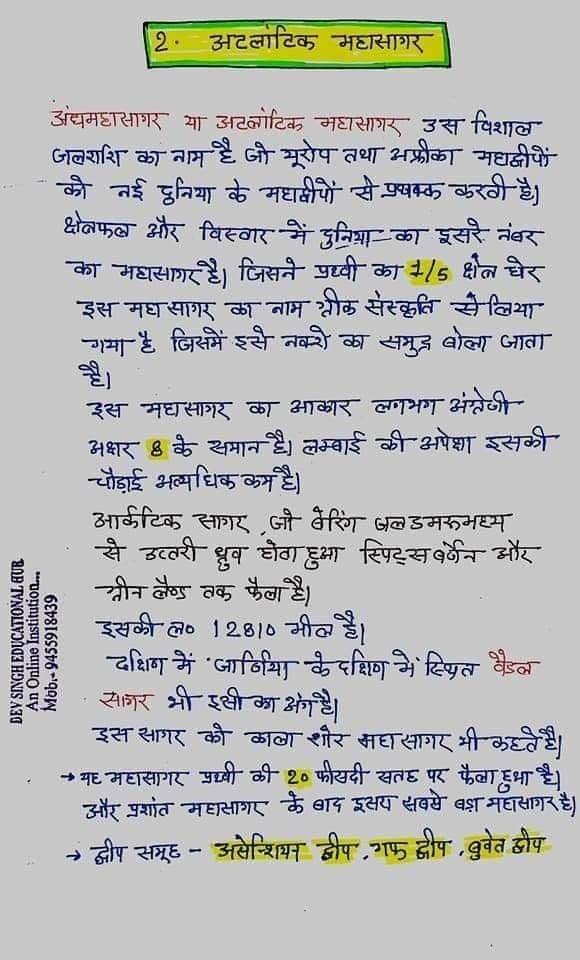 2. अटलांटिक महासागर
अंधमहासागर या अटलांटिक महासागर उस विशाल
जलराशि का नाम है जो यूरोप तथा अफ्रीका महाद्वीपों
को नई दुनिया के महाद्वीपों से प्रथक्क करती है।
क्षेत्रफल और विस्तार में दुनिया का दूसरे नंबर
का महासागर है। जिसने पृथ्वी का 1/5 क्षेत्र घेर
इस महासागर का नाम ग्रीक संस्कृति से लिया
गया है जिसमें इसे नक्शे का समुद्र बोला जाता
है।
इस महासागर का आकार लगभग अंग्रेजी
अक्षर 8 के समान है। लम्बाई की अपेक्षा इसकी
चौड़ाई अत्यधिक कम है।
आर्कटिक सागर, जो बेरिंग जलडमरुमध्य
से उत्तरी ध्रुव होता हुआ स्पिट्सबर्जेन और
ग्रीन लैण्ड तक फैला है।
इसकी ल० 12810 मील है।
दक्षिण में जार्जिया के दक्षिण में स्थित वैडल
सागर भी इसी का अंग है।
इस सागर को काला शोर महासागर भी कहते है।
→ यह महासागर पृथ्वी की 20 फीसदी सतह पर फैला हुआ है।
और प्रशांत महासागर के बाद दूसरा सबसे बड़ा महासागर है।
→ द्वीप समूह - असेन्शियन द्वीप, गफ द्वीप, बुवेत द्वीप
DEV SINGH EDUCATIONAL HUB
An Online Institution...
Mob.+ 9455918439